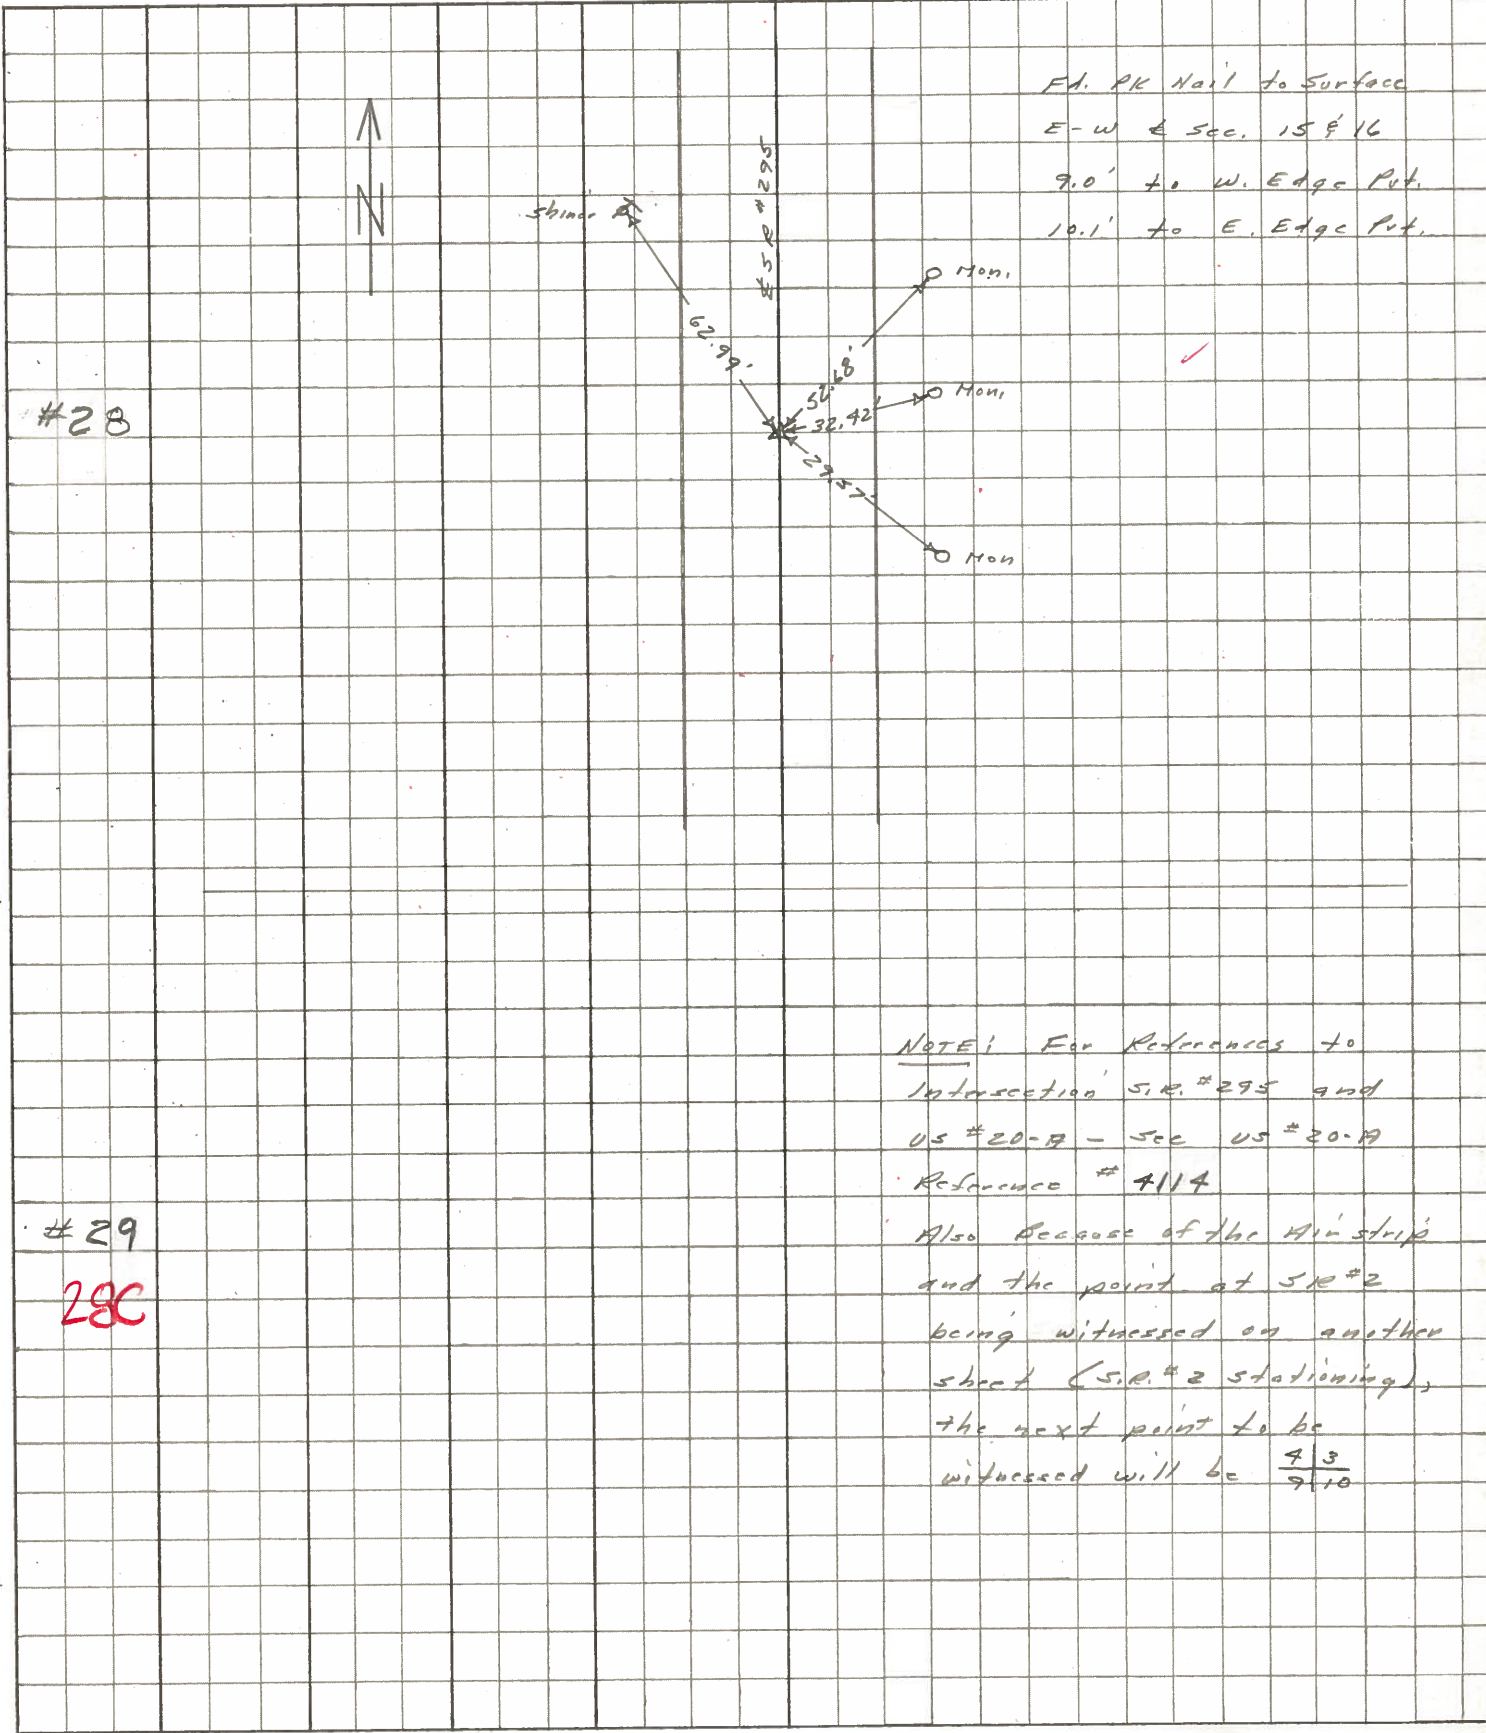 Fd. PK Nail to Surface
E-W ℄ Sec. 15 & 16
9.0' to W. Edge Pvt.
10.1' to E. Edge Pvt.
N
Shiner
℄ S R #295
Mon.
62.99'
Mon.
32.42'
#28
29.57'
Mon
NOTE: For References to
Intersection S.R. #295 and
US #20-A - See US #20-A
Reference # 4114
#29
Also Because of the Airstrip
28C
and the point at SR #2
being witnessed on another
sheet (S.R. #2 stationing),
the next point to be
witnessed will be 4 3
9 10